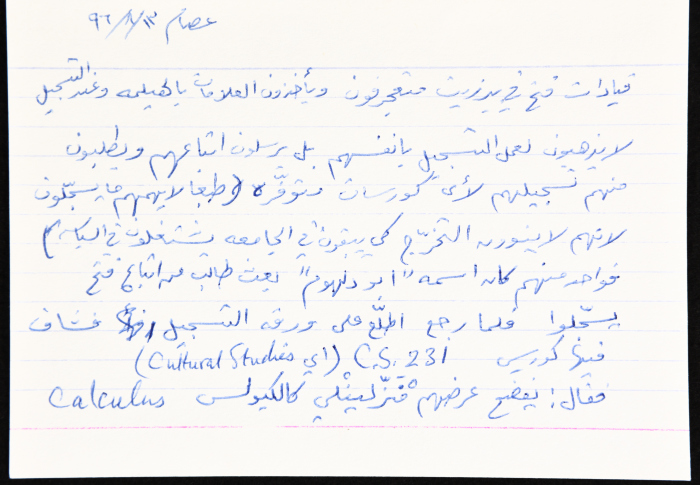 عصام ٩٦/٨/١٣
قيادات فتح في بيرزيت متعجرفون ويأخذون العلامات بالهيلمه وعند التسجيل
لا يذهبون لعمل التسجيل بانفسهم بل يرسلون اتباعهم ويطلبون
منهم تسجيلهم لأي كورسات متوفّره (طبعا لا يهمهم ما يسجّلون
لانهم لا ينوون التخرّج كي يبقون في الجامعه يشتغلون في السياسه)
فواحد منهم كان اسمه "ابو دلهوم" بعث طالب من اتباع فتح
يسجّلوا فلما رجع اطّلع على ورقة التسجيل فشاف
فيها كورس C.S. 231 (اي Cultural Studies)
فقال: يفضح عرضهم منزلينلي كالكيولس Calculus